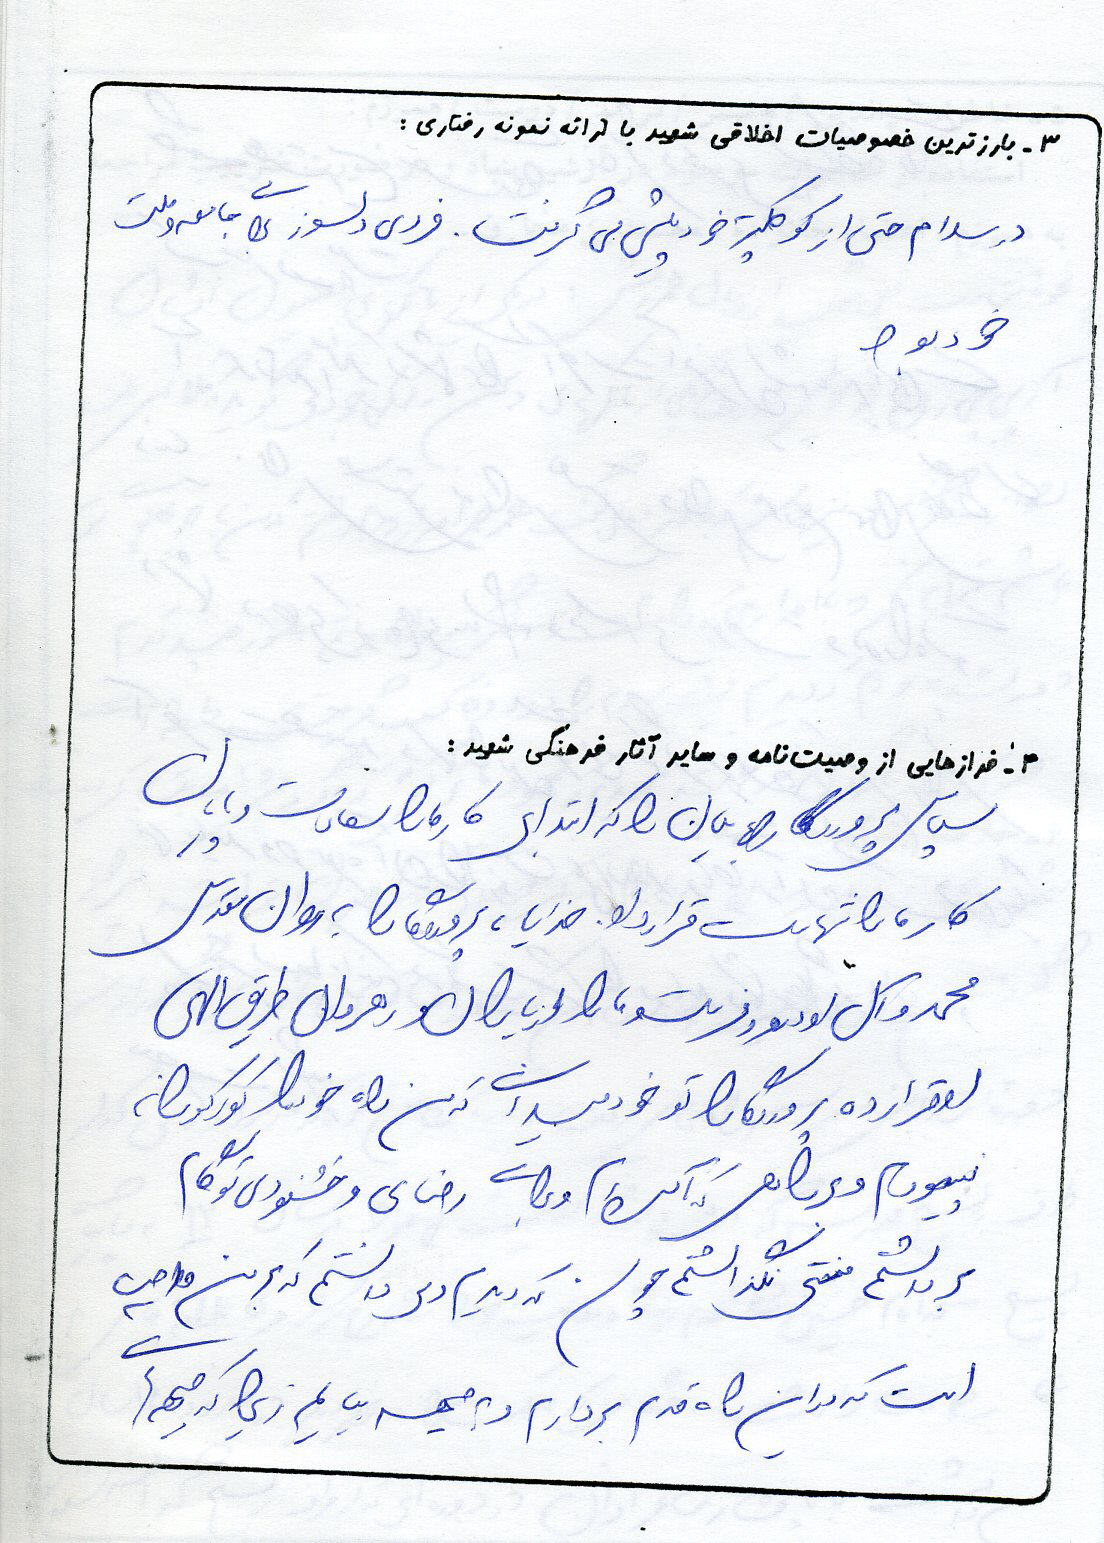 ۳ـ بارزترین خصوصیات اخلاقی شهید با ارائه نمونه رفتاری :
در سلام حتی از کوچکتر خود پیشی می گرفت . فردی دلسوز برای جامعه و ملت
خود بود
۴ـ فرازهایی از وصیت‌نامه و سایر آثار فرهنگی شهید :
سپاس پروردگار جهانیان را که ابتدای کار ما را سعادت و پایان
کار ما را شهادت قرار داد . خدایا ، پروردگارا به روان مقدس
محمد و آل او درود فرست و ما را از یاران و رهروان طریق الهی
او قرار ده پروردگارا تو خود میدانی که من راه خود را کورکورانه
نپیمودم و براهی که آمده ام و برای رضای و خشنودی تو گام
برداشتم منتی نگذاشتم چون که دیدم و می دانستم که بر من واجب
است که در این راه قدم بردارم و به جبهه بیایم زیرا که جبهه ای